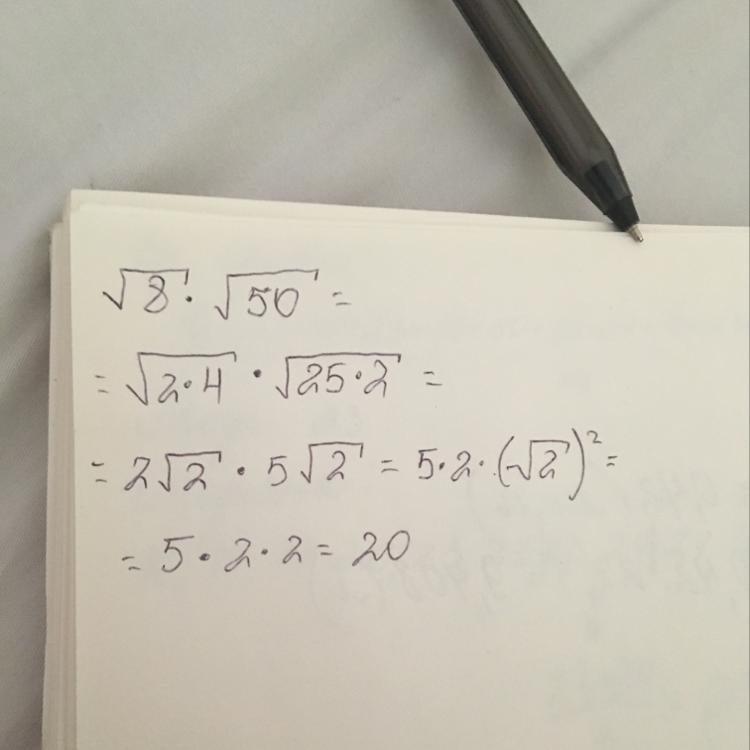 √8 · √50 =
= √2·4 · √25·2 =
= 2√2 · 5√2 = 5·2·(√2)² =
= 5·2·2 = 20